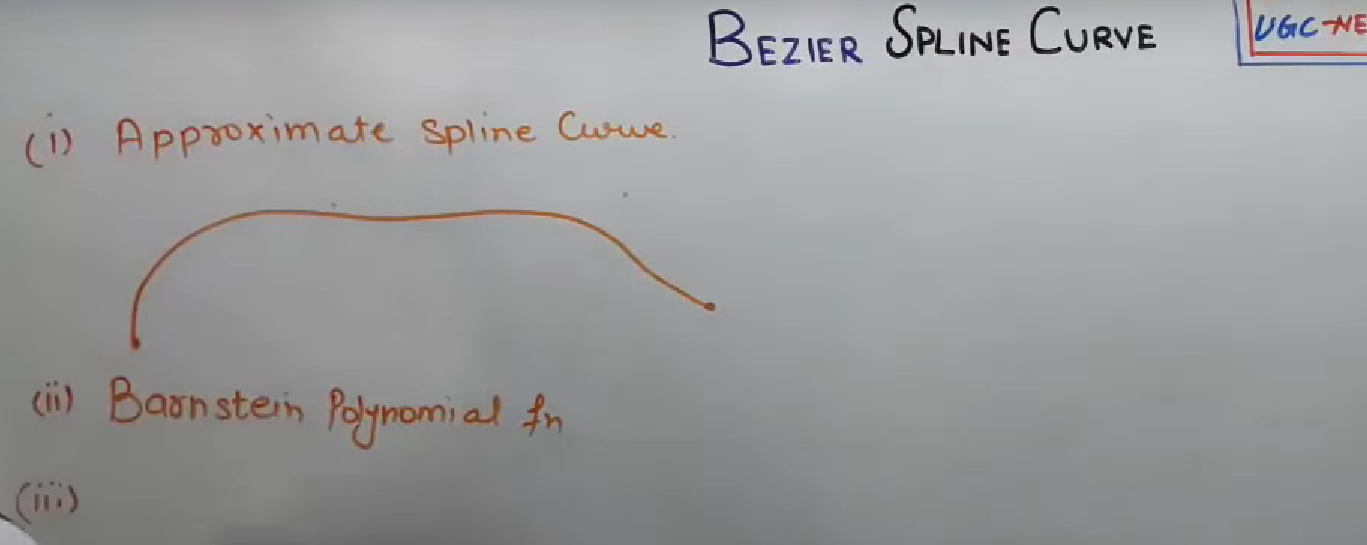 BEZIER SPLINE CURVE
UGC-NE
(i) Approximate Spline Curve.
(ii) Barnstein Polynomial fn
(iii)